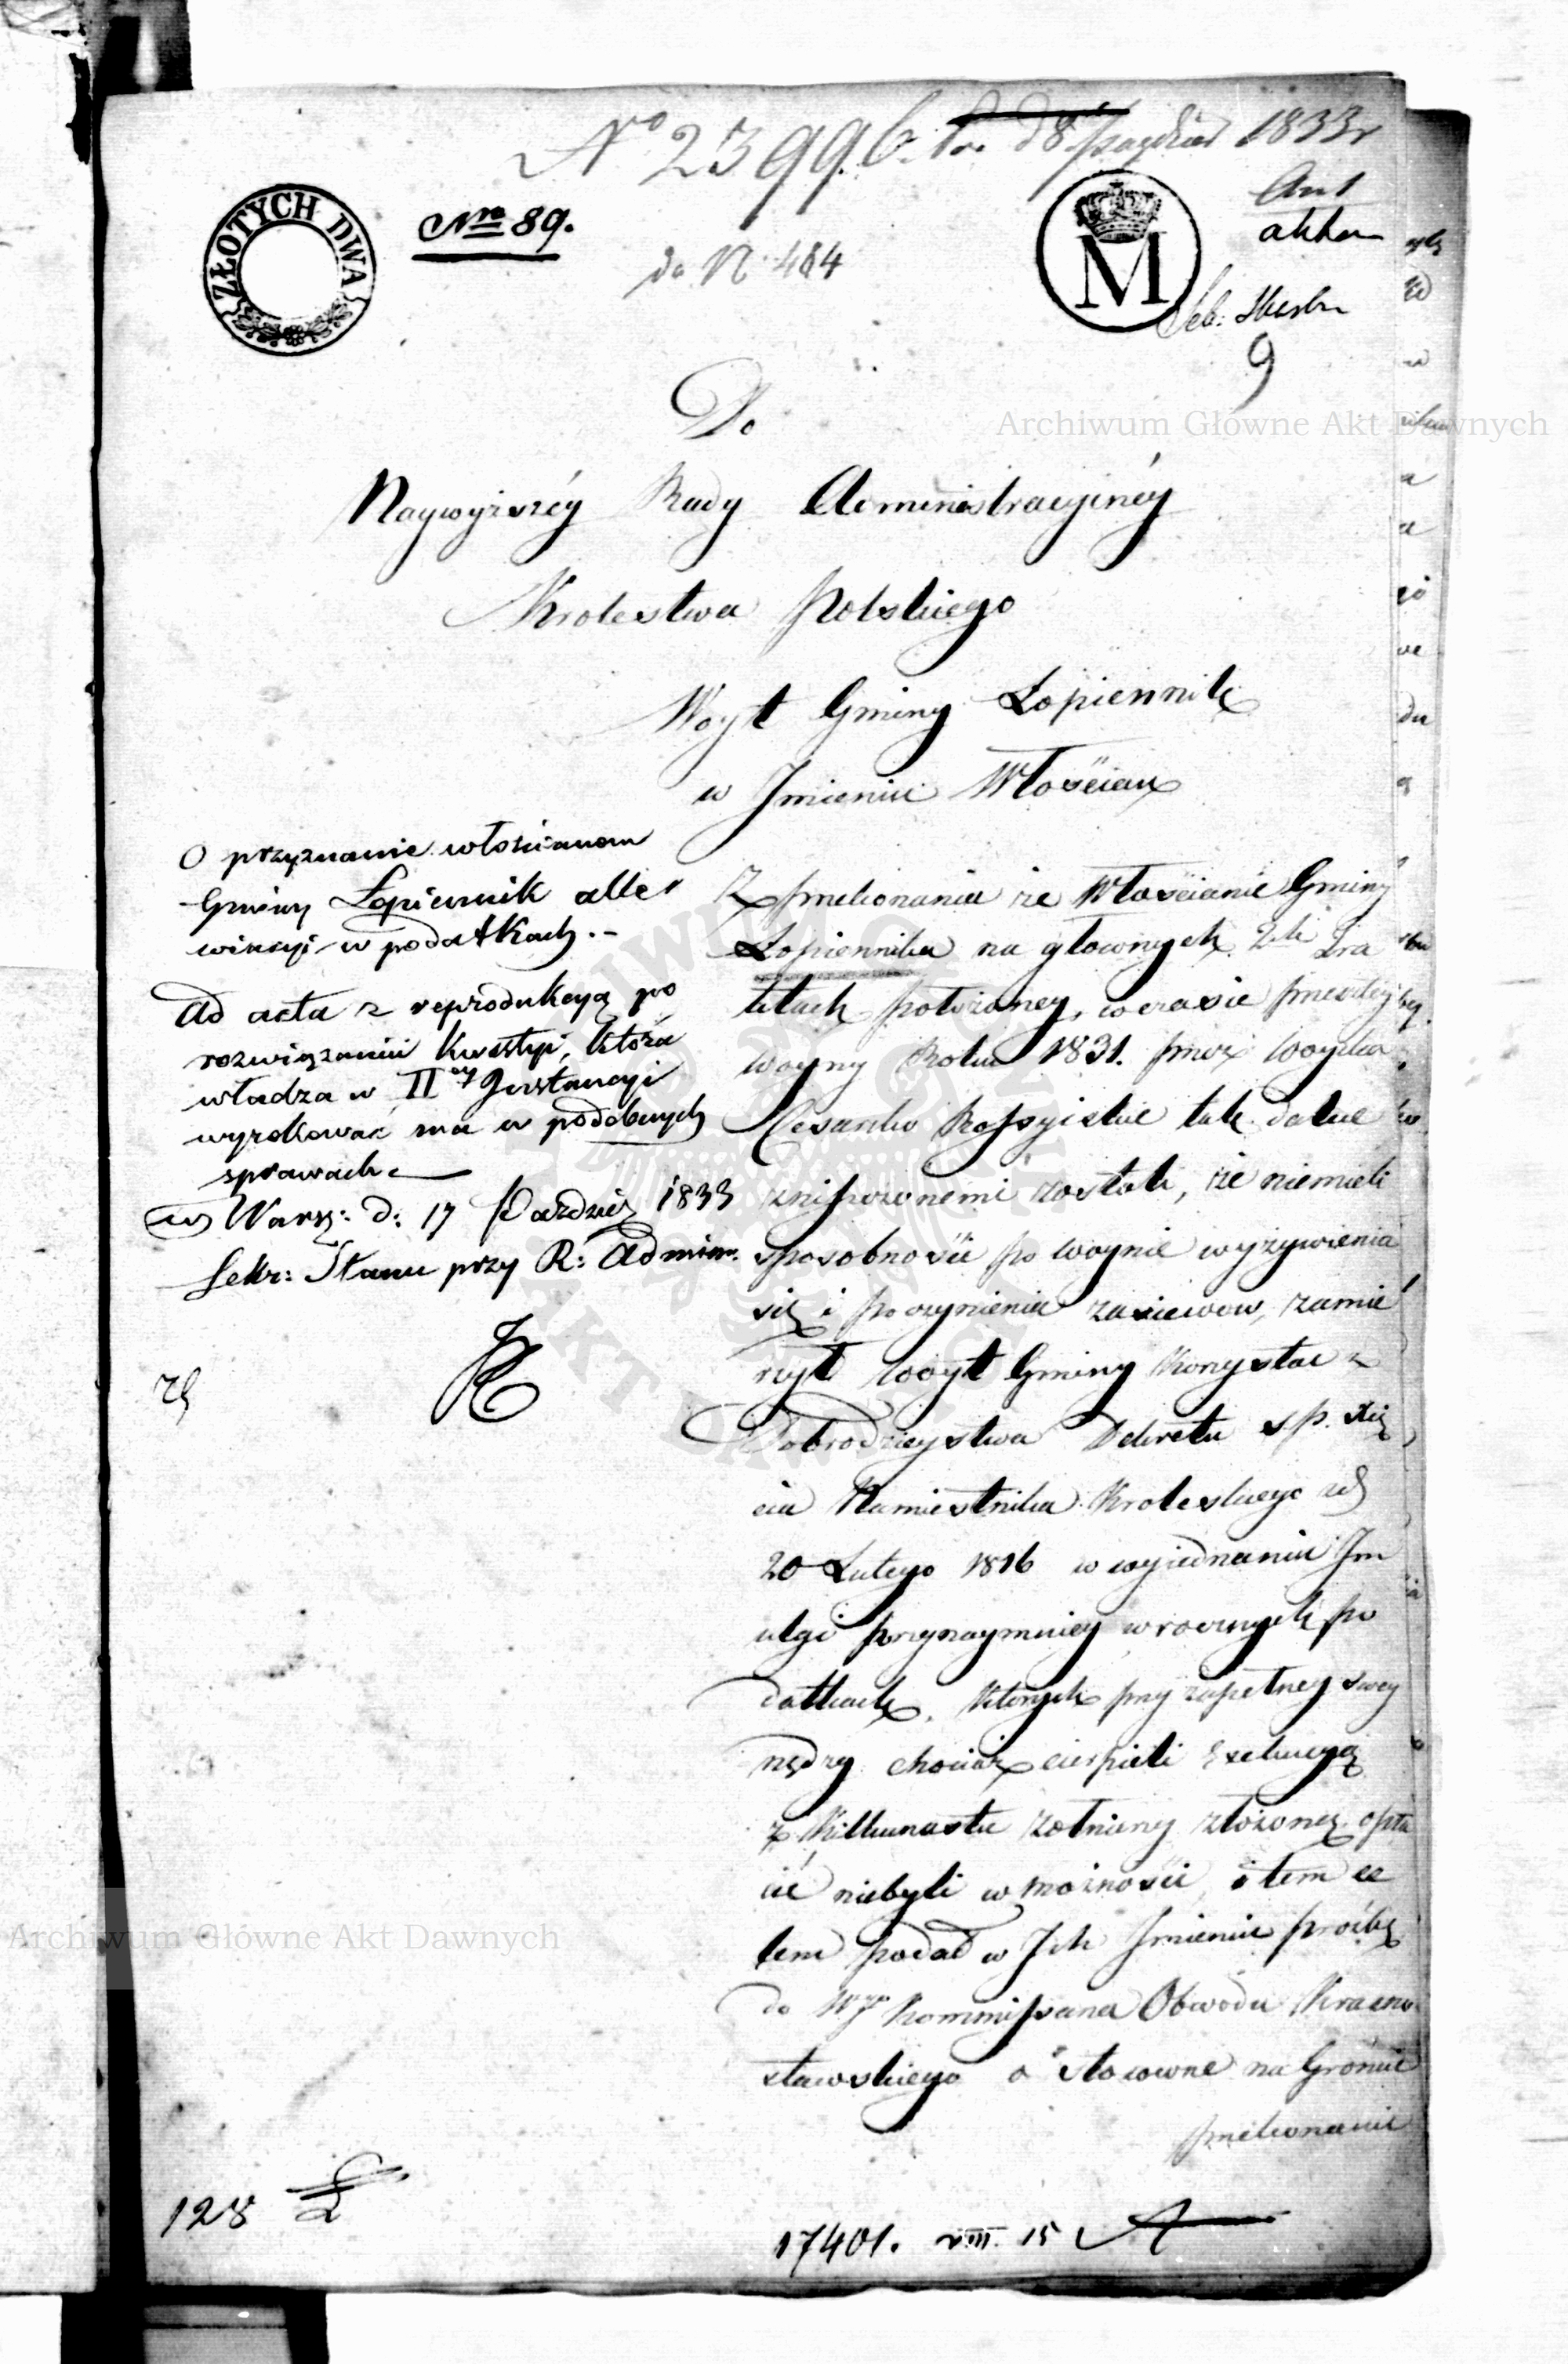 No 23996. pr. d 8 Paźdier 1833 r
ZŁOTYCH DWA
Nro 89.
do N. 464
M
akta
9
Do
Naywyższéy Rady Administracyinéy
Krolestwa Polskiego
Woyt Gminy Łopiennik
w Jmieniu Włościan
O przyznanie włościanom
Gminy Łopiennik alle
wiacyi w podatkach.-
Ad acta z reprodukcyą po
rozwiązaniu kwestyi, którą
władza w II ey Jnstancyi
wyrokować ma w podobnych
sprawach.
w Warsz: d: 17 Paździer 1833
Sekr: Stanu przy R: Admin.
Z przekonania że Włościanie Gminy
Łopiennika na głownych 2ch Tra
ktach położoney, w czasie przeszłey
woyny Roku 1831. przez Woyska
Cesarsko Rossyiskie tak dalece
zniszczonemi zostali, że niemieli
sposobności po woynie wyżywienia
się i poczynienia zasiewow, zamie
rzył Woyt Gminy korzystać z
Dobrodzieystwa Dekretu s.p. Xię
cia Namiestnika Kroleskiego zd
20 Lutego 1816 w wyiednaniu Jm
ulgi przynaymniey w rocznych po
datkach, ktorych przy zupełney swey
nędzy chociaż cierpieli Exekucyą
z kilkunastu żołnierzy złożoną opła
cić niebyli w możności, i tem ce
lem podał w Jch Jmieniu prośbę
do Wgo Kommissarza Obwodu Krasno
stawskiego o stosowne na Gruncie
przekonanie
128
17401. VIII. 15
Archiwum Główne Akt Dawnych
Archiwum Główne Akt Dawnych